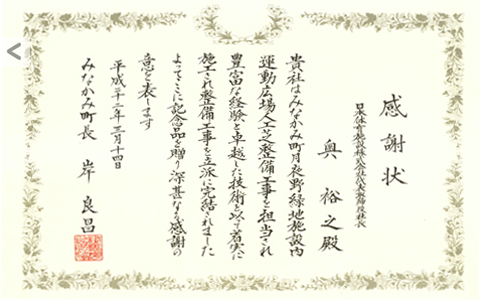 感謝状
日本体育施設株式会社
奥裕之殿
貴社はみなかみ町月夜野緑地施設内
運動広場人工芝整備工事を担当され
豊富な経験と卓越した技術を以て着実に
施工され整備工事を立派に完結されました
よってここに記念品を贈り深甚なる感謝の
意を表します
平成二十二年三月十四日
みなかみ町長 岸良昌